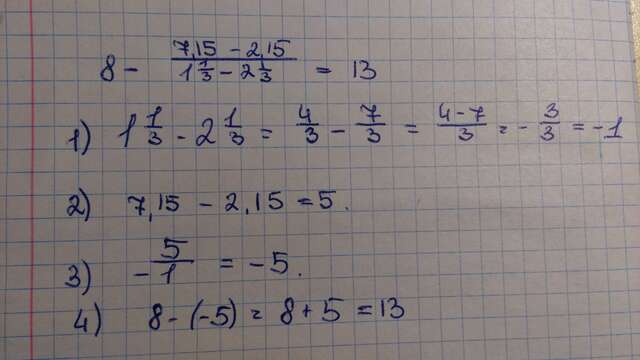 8 - (7,15 - 2,15)/(1 1/3 - 2 1/3) = 13
1) 1 1/3 - 2 1/3 = 4/3 - 7/3 = (4-7)/3 = - 3/3 = -1
2) 7,15 - 2,15 = 5.
3) 5/-1 = -5.
4) 8 - (-5) = 8 + 5 = 13